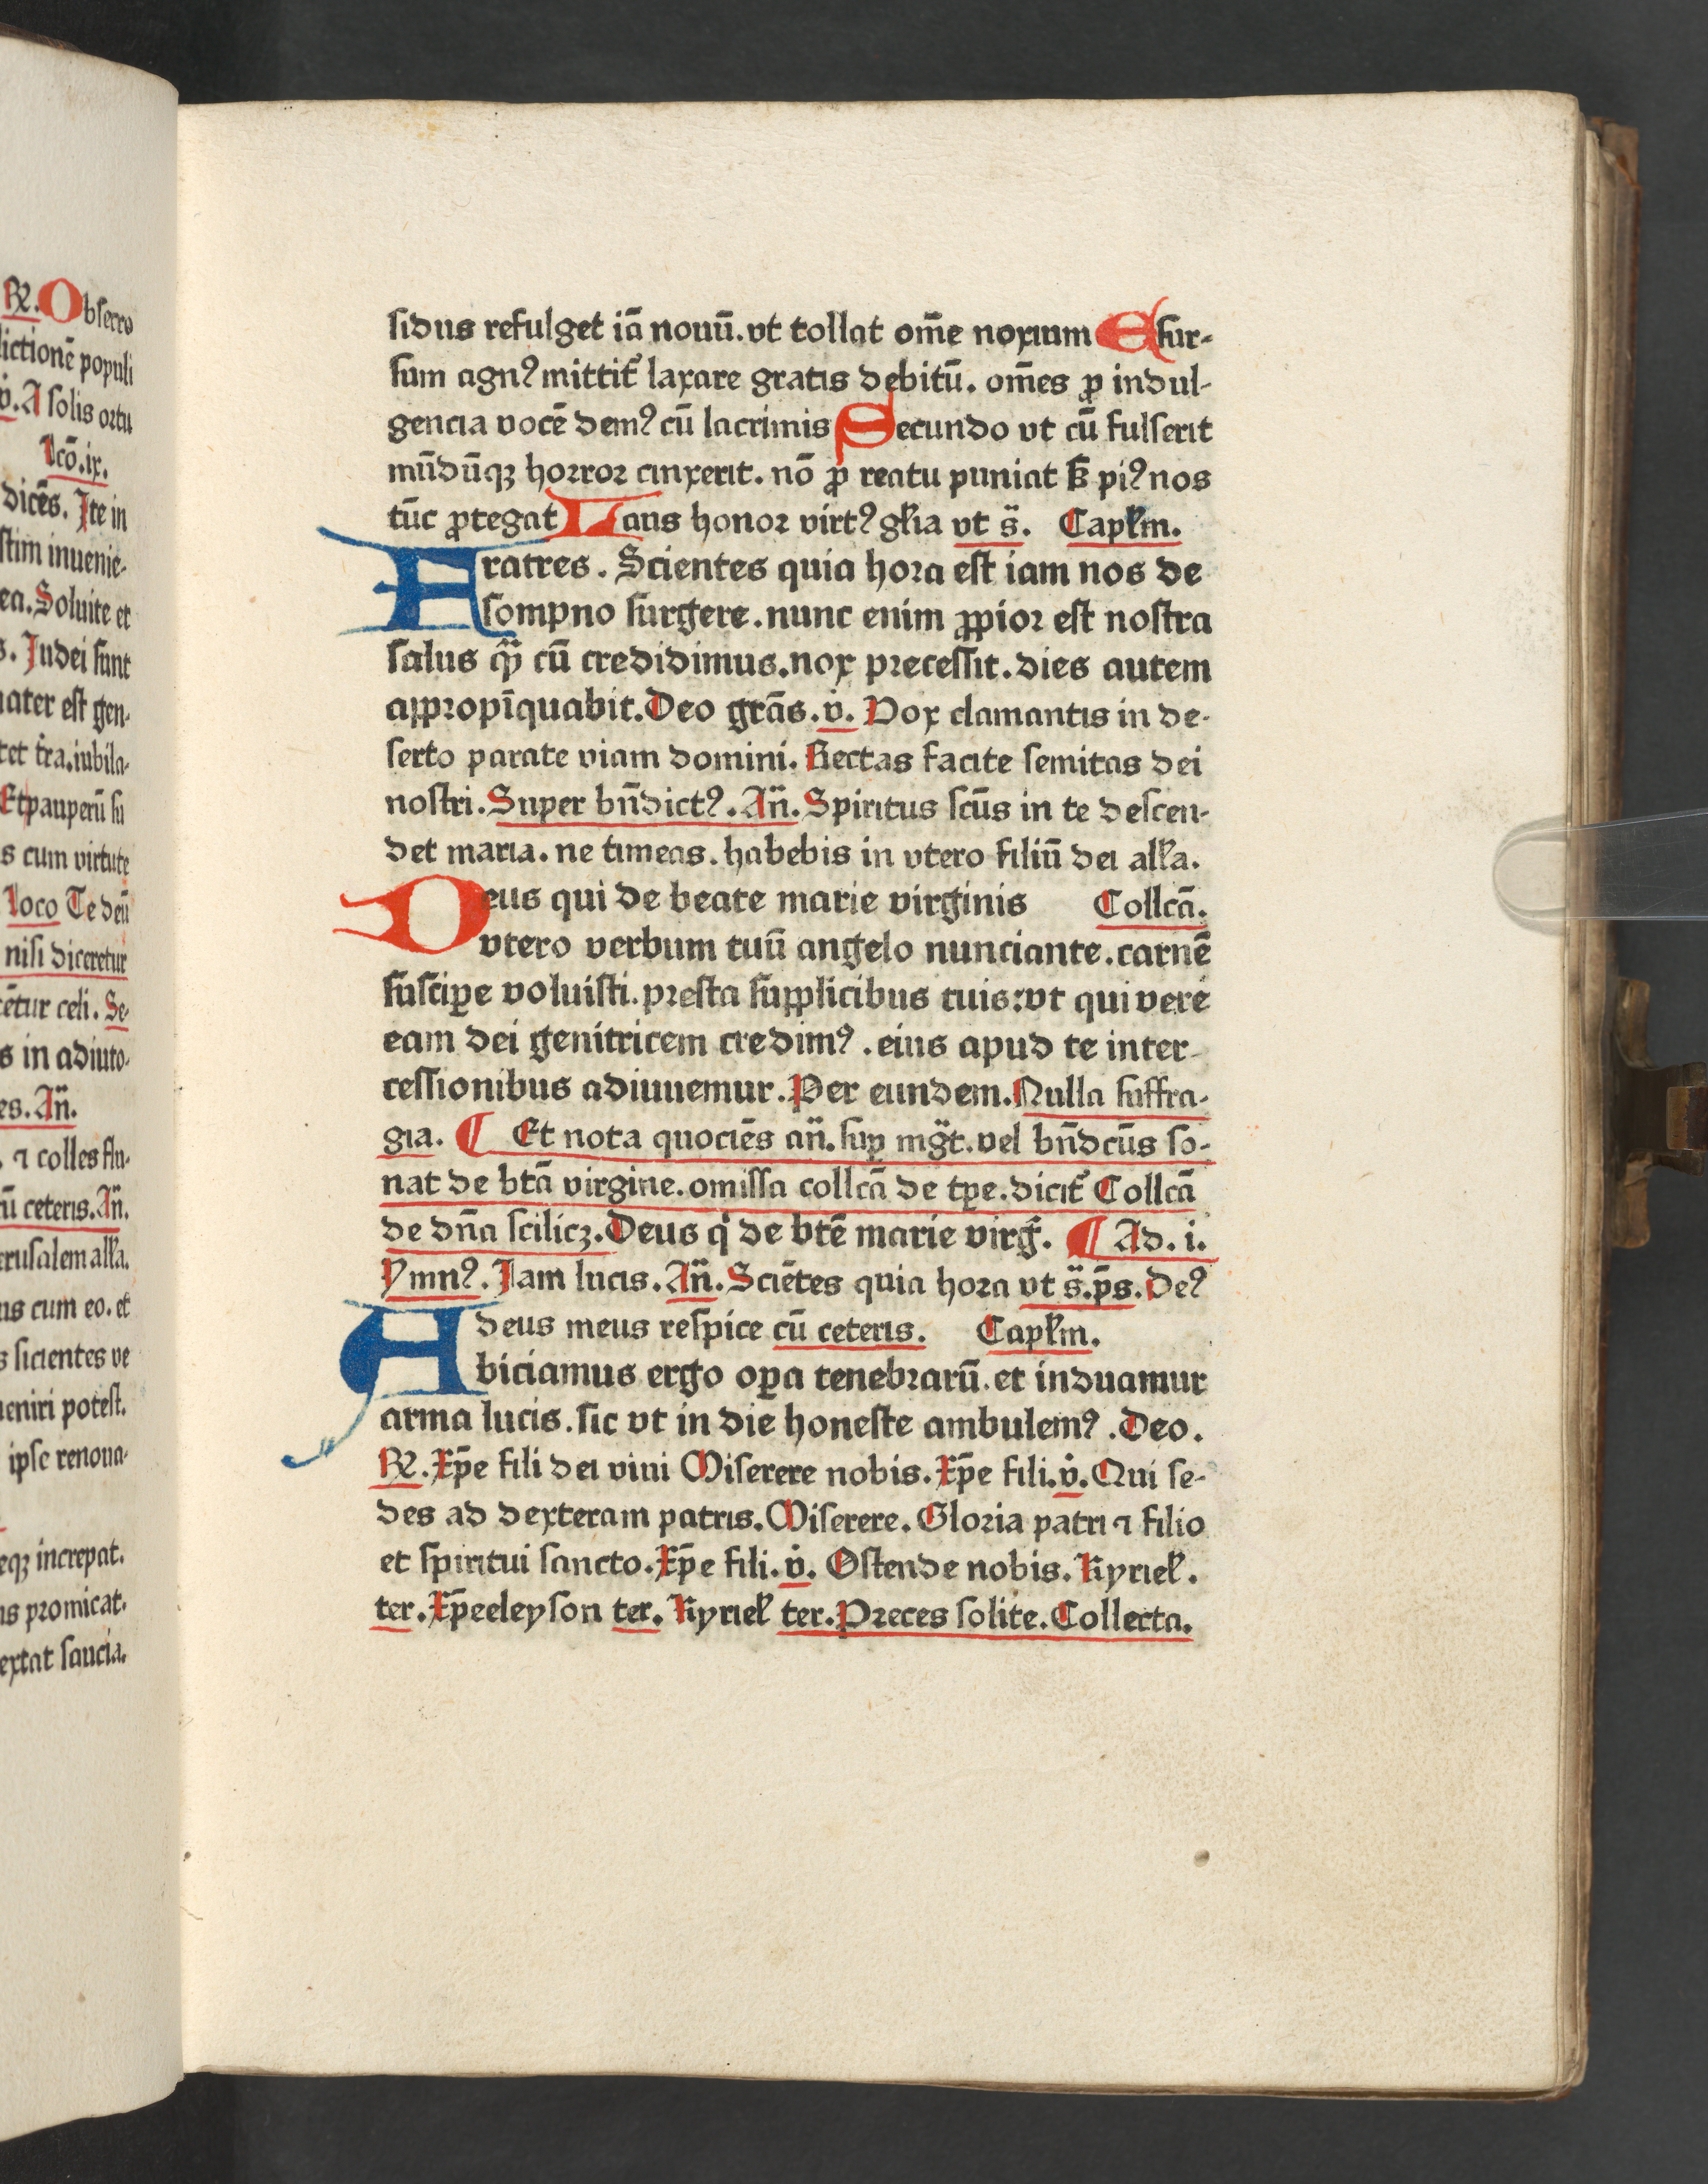 R̃. Obsecro
dictionē populi
v̇. A solis ortu
Lcō. ix.
dicēs. Ite in
stim inuenie-
ea. Soluite et
s. Judei sunt
mater est gen-
tet tr̄a. iubila-
Et pauperū su
s cum virtute
loco Te deū
nisi diceretur
cētur celi. Se-
s in adiuto-
es. An̄.
. ⁊ colles flu-
cū ceteris. An̄.
erusalem all̄a.
us cum eo. et
s sicientes ve
ueniri potest.
ipse renoua-
eqꝫ increpat.
ns promicat.
extat saucia.
sidus refulget iā nouū. vt tollat om̄e noxium E sur-
sum agnꝰ mittit᷑ laxare gratis debitū. om̄es ꝓ indul-
gencia vocē demꝰ cū lacrimis Secundo vt cū fulserit
mūdūqꝫ horror cinxerit. nō ꝓ reatu puniat sꝫ piꝰ nos
tūc ꝓtegat Laus honor virtꝰ gl̄ia vt s̄. Capl̄m.
Fratres. Scientes quia hora est iam nos de
sompno surgere. nunc enim ꝓpior est nostra
salus qᷓꝫ cū credidimus. nox precessit. dies autem
appropīquabit. Deo grās. v̇. Vox clamantis in de-
serto parate viam domini. Rectas facite semitas dei
nostri. Super bn̄dictꝰ. An̄. Spiritus scūs in te descen-
det maria. ne timeas. habebis in vtero filiū dei all̄a.
Deus qui de beate marie virginis Collcā.
vtero verbum tuū angelo nunciante. carnē
susciꝑe voluisti. presta supplicibus tuis: vt qui vere
eam dei genitricem credimꝰ. eius apud te inter-
cessionibus adiuuemur. Per eundem. Nulla suffra-
gia. ¶ Et nota quociēs an̄. suꝑ mḡt. vel bn̄dcūs so-
nat de btā virgine. omissa collcā de tꝑe. dicit᷑ Collcā
de dn̄a scilicꝫ. Deus qͥ de btē marie virḡ. ¶ Ad. i.
Ymnꝰ. Jam lucis. An̄. Sciētes quia hora vt s̄. p̄s. Deꝰ
deus meus respice cū ceteris. Capl̄m.
Abiciamus ergo oꝑa tenebrarū. et induamur
arma lucis. sic vt in die honeste ambulemꝰ. Deo.
R̃. Xp̄e fili dei viui Miserere nobis. Xp̄e fili. v̇. Qui se-
des ad dexteram patris. Miserere. Gloria patri ⁊ filio
et spiritui sancto. Xp̄e fili. v̇. Ostende nobis. Kyriel̄.
ter. Xp̄eeleyson ter. Kyriel̄ ter. Preces solite. Collecta.